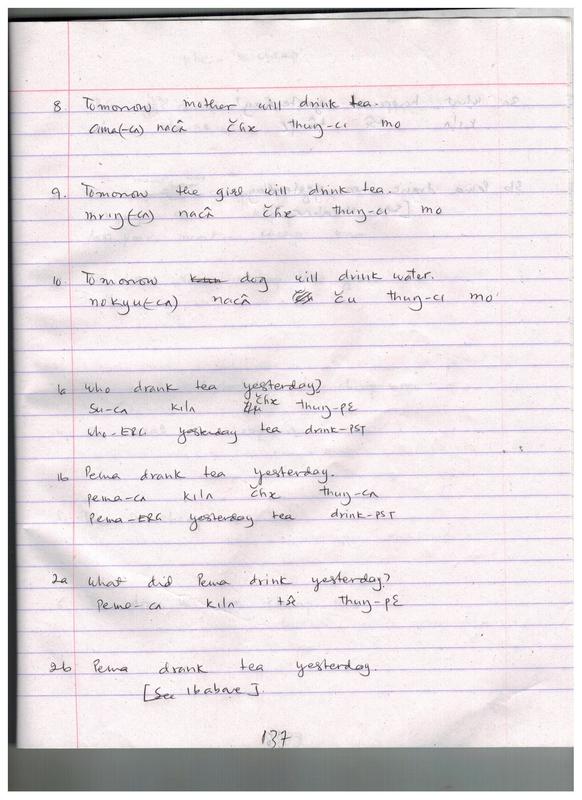 8. Tomorrow mother will drink tea.
ama(-cʌ) nacâ čhx thuŋ-cı mo
9. Tomorrow the girl will drink tea.
mriŋ(-cʌ) nacâ čhx thuŋ-cı mo
10 Tomorrow dog will drink water.
nokyu(-cʌ) nacâ ču thuŋ-cı mo
1a Who drank tea yesterday?
Su-cʌ kilʌ čhx thuŋ-pƐ
who-ERG yesterday tea drink-PST
1b Pema drank tea yesterday.
pema-cʌ kilʌ čhx thuŋ-cʌ
Pema-ERG yesterday tea drink-PST
2a What did Pema drink yesterday?
Pema-cʌ kilʌ thuŋ-pƐ
2b Pema drank tea yesterday.
[See 1b above].
137